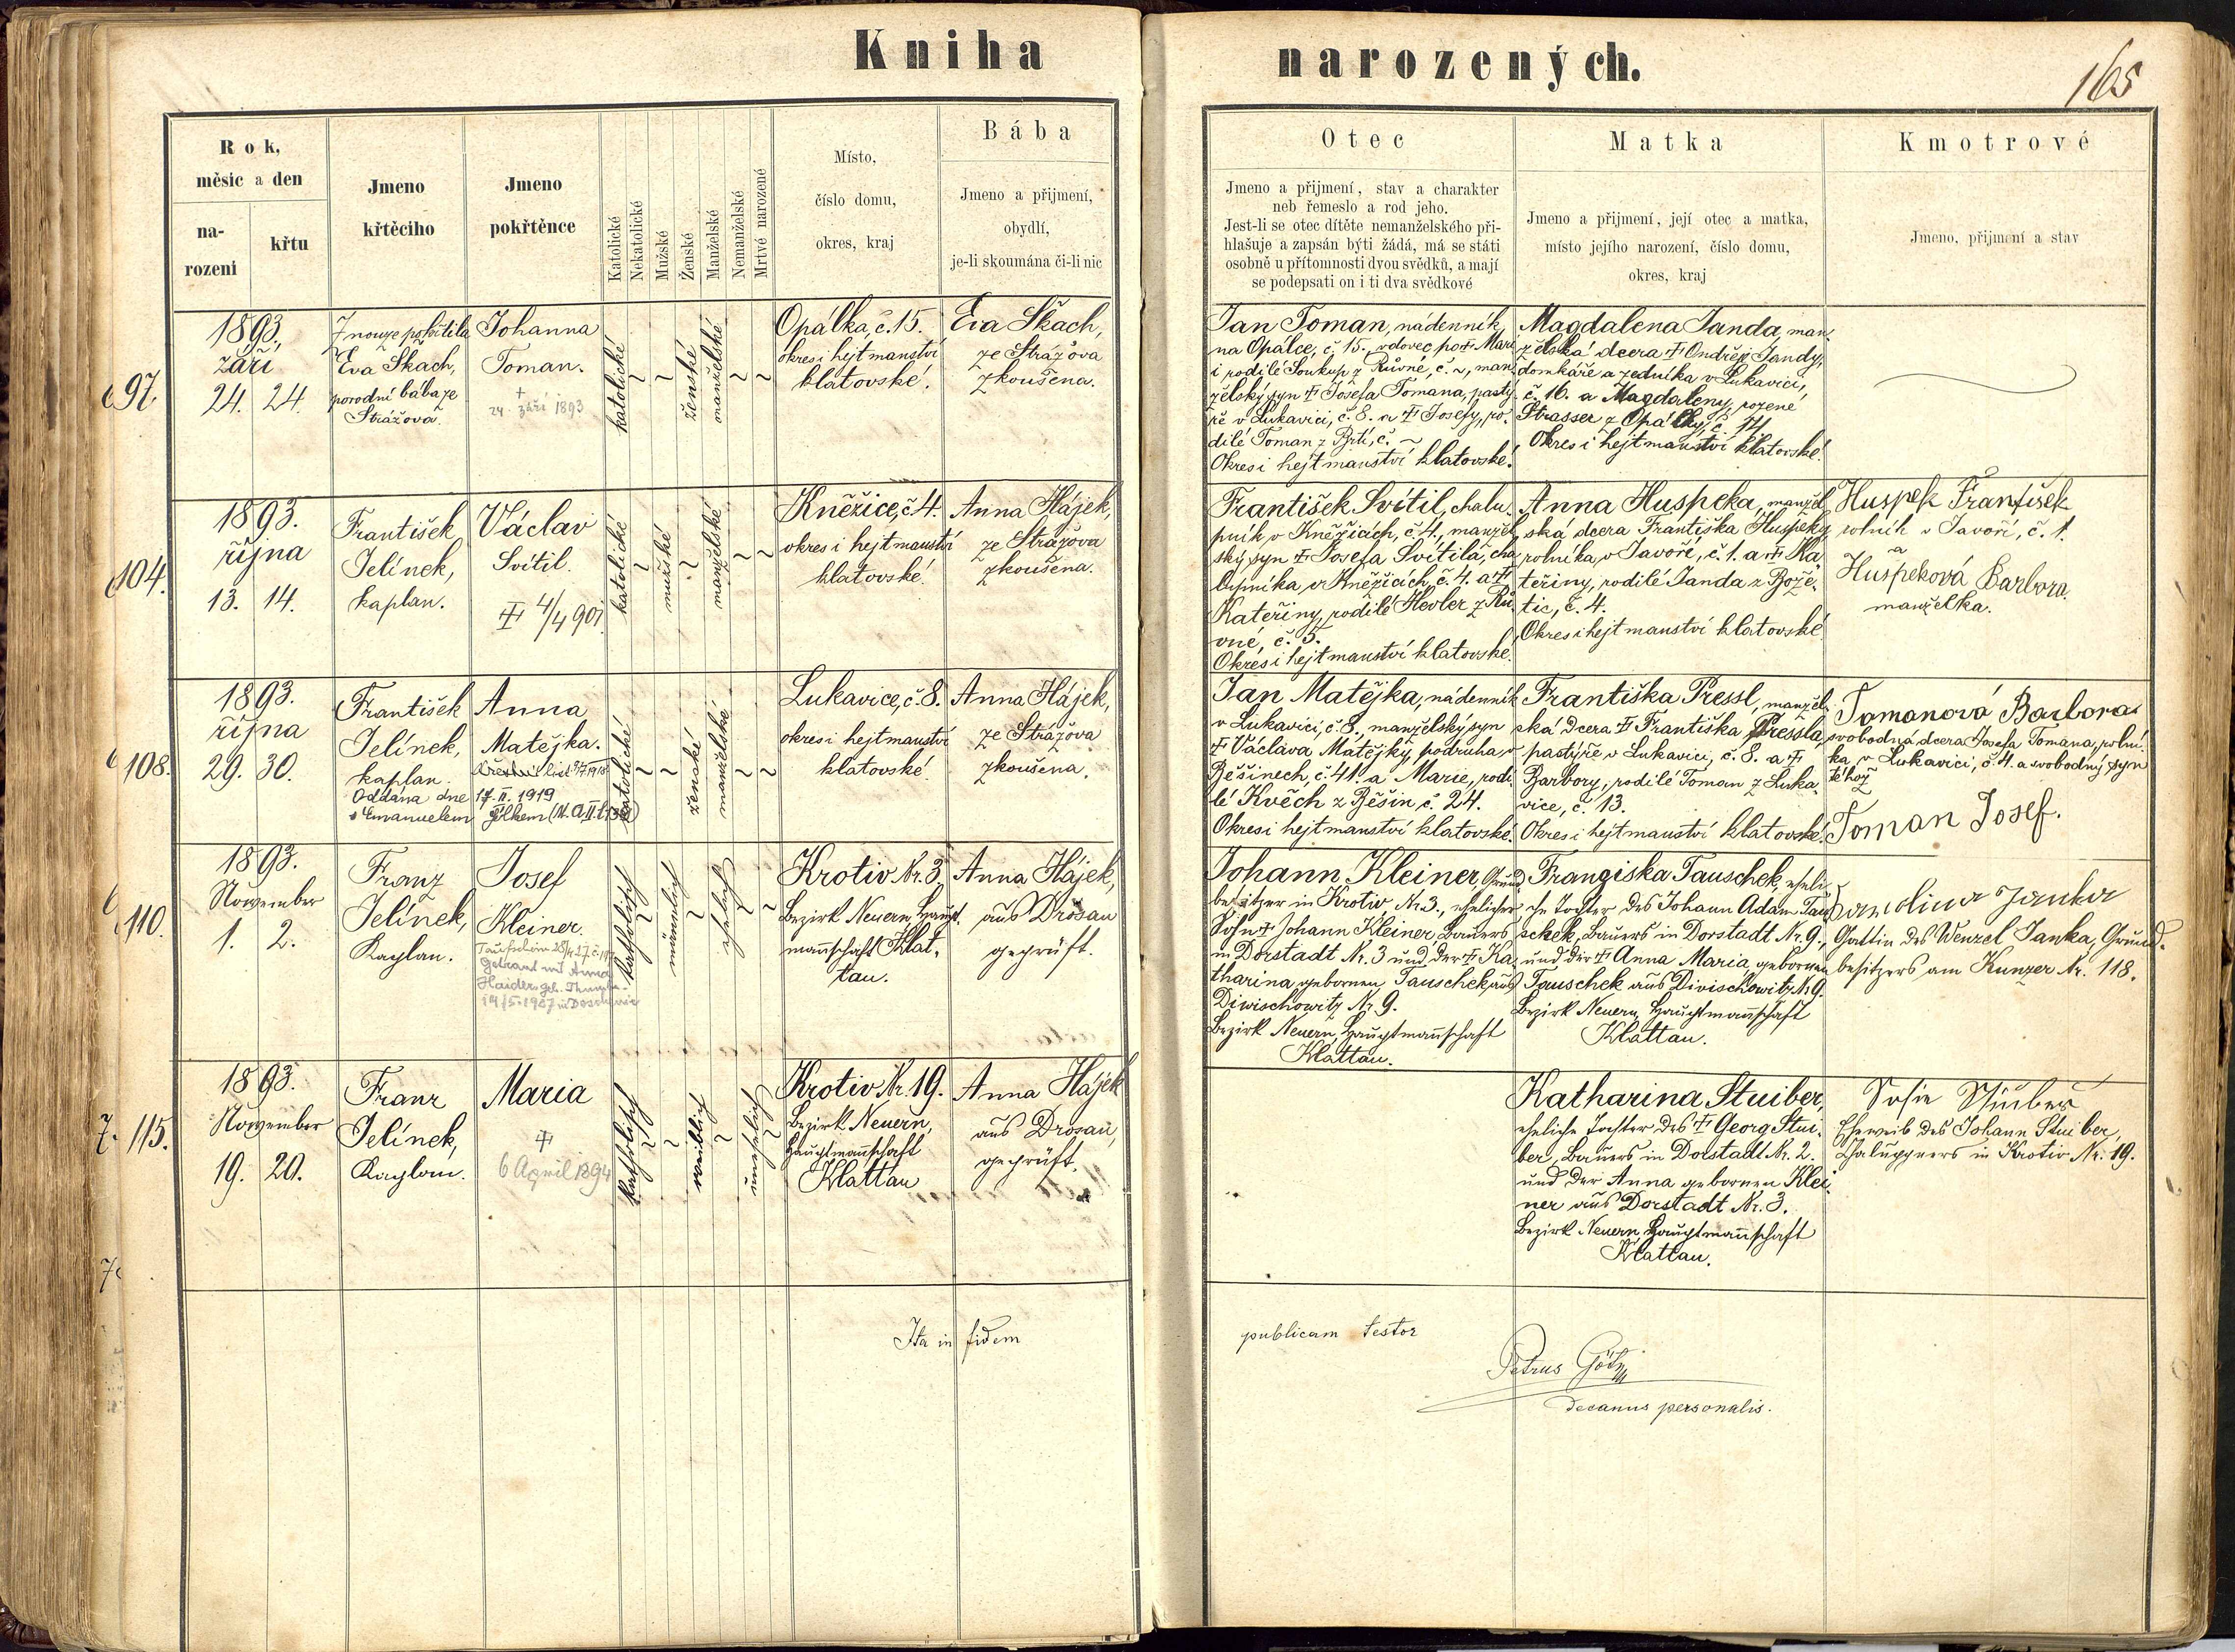 Kniha narozených.
165
Rok, měsic a den
na-rozeni
křtu
Jmeno křtěciho
Jmeno pokřtěnce
Katolické
Nekatolické
Mužské
Ženské
Manželské
Nemanželské
Mrtvé narozené
Místo,
číslo domu,
okres, kraj
Bába
Jmeno a přijmení,
obydlí,
je-li skoumána či-li nic
Otec
Jmeno a přijmení, stav a charakter
neb řemeslo a rod jeho.
Jest-li se otec dítěte nemanželského při-
hlašuje a zapsán býti žádá, má se státi
osobně u přítomnosti dvou svědků, a mají
se podepsati on i ti dva svědkové
Matka
Jmeno a přijmení, její otec a matka,
místo jejího narození, číslo domu,
okres, kraj
Kmotrové
Jmeno, přijmení a stav
97.
1893.
září
24. 24.
Z nouze pokřtila
Eva Skach,
porodní bába ze
Strážova.
Johanna
Toman.
+
24. září 1893
katolické
ženské
manželské
Opálka, č. 15.
okres i hejtmanství
klatovské.
Eva Skach,
ze Strážova
zkoušena.
Jan Toman, nádenník
na Opálce, č. 15., vdovec po † Mari
i rodilé Soukup z Růvné, č. ~, man-
želský syn † Josefa Tomana, pastý-
ře v Lukavici, č. 8. a † Josefy, ro-
dilé Toman z Brtí, č. ~
Okres i hejtmanství klatovské.
Magdalena Janda, man-
želská dcera † Ondřeje Jandy,
domkáře a zedníka v Lukavici,
č. 16. a Magdaleny, rozené
Strasser z Opálky, č. 14.
Okres i hejtmanství klatovské.
104.
1893.
října
13. 14.
František
Jelínek,
kaplan.
Václav
Svítil.
† 4/4 901
katolické
mužské
manželské
Kněžice, č. 4.
okres i hejtmanství
klatovské.
Anna Hájek,
ze Strážova
zkoušena.
František Svítil, chalu-
pník v Kněžicích, č. 4., manžel-
ský syn † Josefa Svítila, cha-
lupníka v Kněžicích, č. 4. a †
Kateřiny, rodilé Hevler z Rů-
vné, č. 5.
Okres i hejtmanství klatovské.
Anna Huspeka, manžel-
ská dcera Františka Huspeky,
rolníka v Javoře, č. 1. a † Ka-
teřiny, rodilé Janda z Bože-
tic, č. 4.
Okres i hejtmanství klatovské.
Huspek František
rolník v Javoří, č. 1.
a
Huspeková Barbora
manželka.
108.
1893.
října
29. 30.
František
Jelínek,
kaplan.
Anna
Matějka.
Oddána dne 17. II. 1919
s Emanuelem
katolické
ženské
manželské
Lukavice, č. 8.
okres i hejtmanství
klatovské.
Anna Hájek,
ze Strážova
zkoušena.
Jan Matějka, nádenník
v Lukavici, č. 8., manželský syn
† Václava Matějky, podruha v
Běšinech, č. 41. a Marie, rodi-
lé Kvěch z Běšin č. 24.
Okres i hejtmanství klatovské.
Františka Pressl, manžel-
ská dcera † Františka Pressla,
pastýře v Lukavici, č. 8. a †
Barbory, rodilé Toman z Luka-
vice, č. 13.
Okres i hejtmanství klatovské.
Tomanová Barbora
svobodná dcera Josefa Tomana, rolní-
ka v Lukavici, č. 4. a svobodný syn
téhož
Toman Josef.
110.
1893.
November
1. 2.
Franz
Jelínek,
Kaplan.
Josef
Kleiner.
Getraut mit Anna
katholisch
männlich
ehelich
Krotiv Nr. 3
Bezirk Neuern, Haupt-
mannschaft Klat-
tau.
Anna Hájek,
aus Drosau
geprüft.
Johann Kleiner, Grund-
besitzer in Krotiv Nr. 3., ehelicher
Sohn † Johann Kleiner, Bauers
in Dorstadt Nr. 3 und der † Ka-
tharina gebornen Tauschek aus
Diwischowitz Nr. 9.
Bezirk Neuern, Hauptmannschaft
Klattau.
Franziska Tauschek, eheli-
che Tochter des Johann Adam Tau-
schek, Bauers in Dorstadt Nr. 9.,
und der † Anna Maria gebornen
Tauschek aus Divischowitz Nr. 9.
Bezirk Neuern, Hauptmannschaft
Klattau.
Janka
Gattin des Wenzel Janka, Grund-
besitzers am Kunzer Nr. 118.
115.
1893.
November
19. 20.
Franz
Jelínek,
Kaplan.
Maria
†
6 April 1894
katholisch
weiblich
unehelich
Krotiv Nr. 19.
Bezirk Neuern,
Hauptmannschaft
Klattau
Anna Hájek
aus Drosau,
geprüft.
Katharina Stuiber,
eheliche Tochter des † Georg Stui-
ber, Bauers in Dorstadt Nr. 2.
und der Anna gebornen Klei-
ner aus Dorstadt Nr. 3.
Bezirk Neuern, Hauptmannschaft
Klattau.
Sofie Stuiber
Eheweib des Johann Stuiber,
Chaluppners in Krotiv Nr. 19.
Ita in fidem publicam testor
Petrus Götz
decanus personalis.